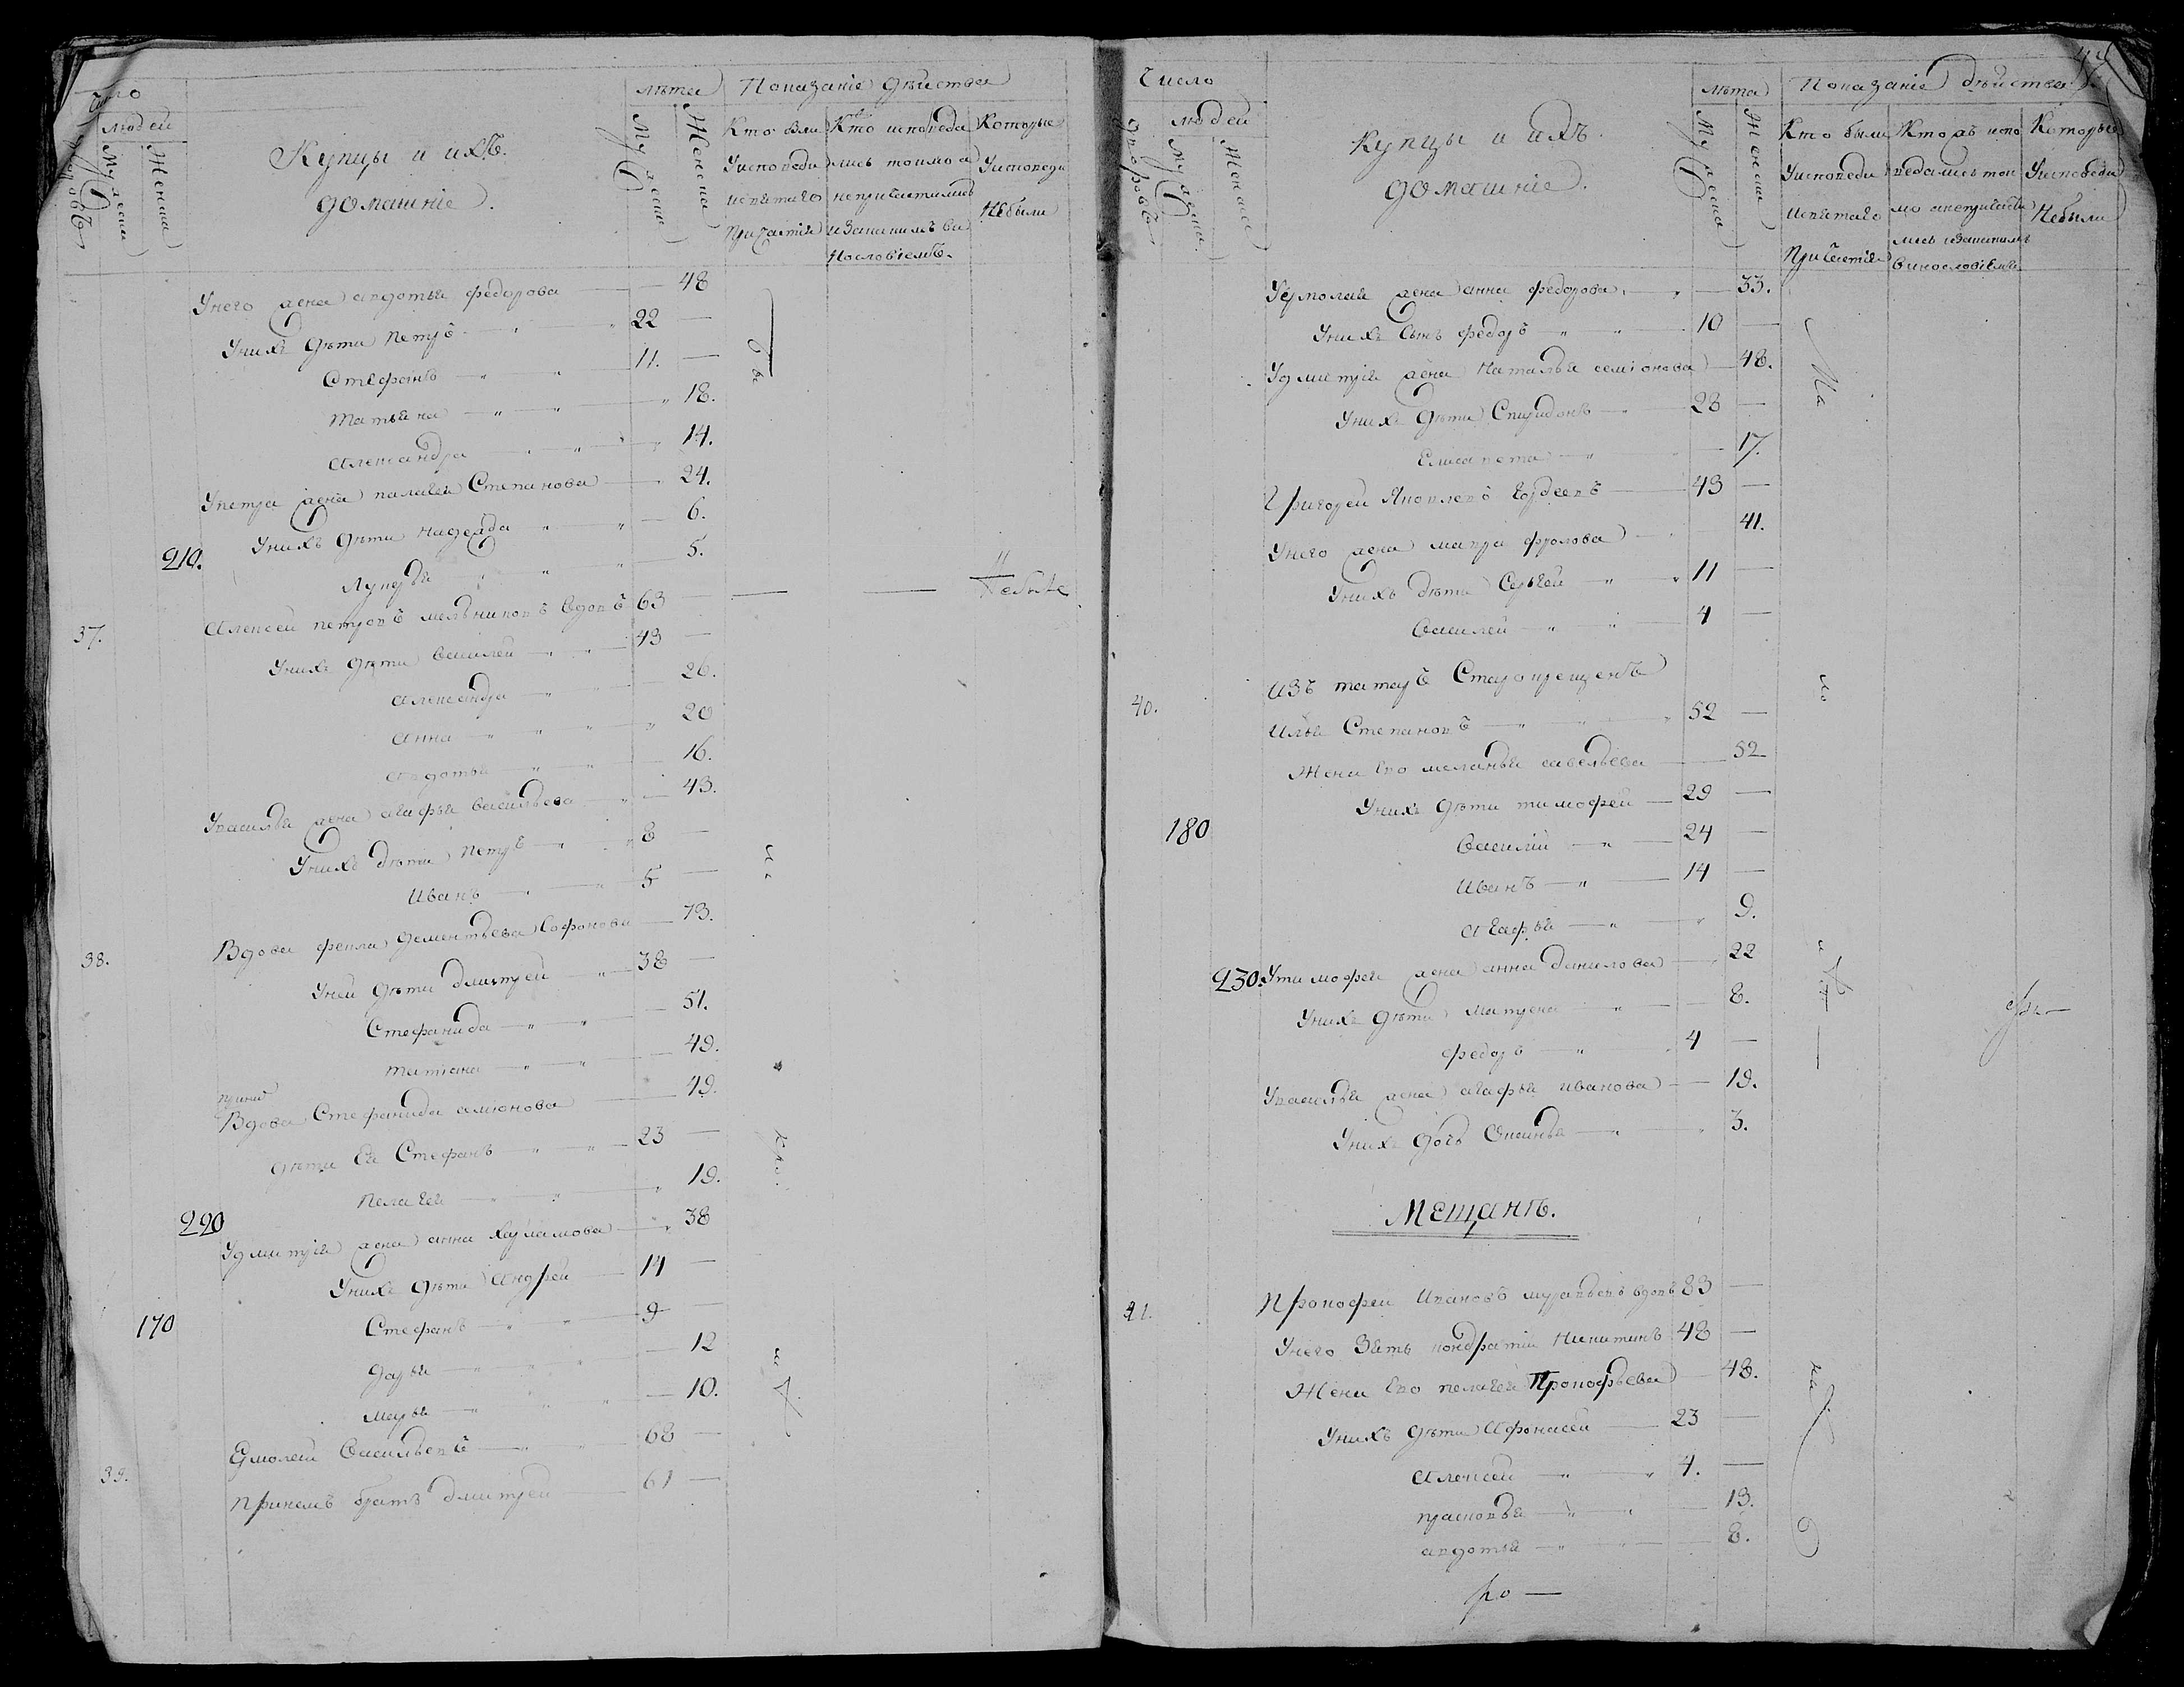 Число
людей
дворовъ
Мужеска
Женска
Купцы и ихъ
домашніе.
лѣта
Мужеска
Женска
Показаніе дѣйства
Кто были
Уисповеди
исвятаго
Причастія
Кто исповеда
лись токмо а
непричастились
изакакимъ ви
нословіемъ.
Которые
Уисповеди
Небыли
Унего жена авдотья федорова — 48
Унихъ дѣти Петръ — " 22 —
Стефанъ — " 11. —
татьяна — " — " 18.
александра — " 14.
Упетра жена палагея Степанова — 24.
Унихъ дѣти надежда " " — 6.
210.
Лукерья " " " 5.
37. Алексей петровъ мельниковъ вдовъ 63 — — — Небыле
Унихъ дѣти василей — " 43 —
александра — " 26.
анна — " " " 20
авдотья — " 16.
Увасилья жена агафья васильева — 43.
Унихъ дѣти Петръ — " 8 —
Иванъ — " 5 —
38. Вдова фекла дементьева Софонова — 73.
Уней дѣти дмитрей — " 38 —
Стефанида — " 51.
татiана — " 49.
Вдова Стефанида семiонова — 49.
дѣти Ея Стефанъ — " 23 —
Пелагея — " " 19.
220
Удмитрія жена анна — 38
Унихъ дѣти Андрей — 14 —
170
Стефанъ — " 9 —
дарья — " 12
марья — " " — 10.
39. Ермолай васильевъ — " 68 —
При немъ братъ дмитрей — 61 —
Число
людей
дворовъ
Мужеска
Женска
Купцы и ихъ
домашніе.
лѣта
Мужеска
Женска
Показаніе дѣйства
Кто были
Уисповеди
исвятаго
Причастія
Кто хъ испо
ведались ток
мо анепричасти
лись изакакимъ
винословіемъ
Которые
Уисповеди
Небыли
Уермолая жена анна федорова — 33.
Унихъ сынъ федоръ — " 10 —
Удмитрія жена Наталья семiонова — 48.
Унихъ дѣти Спиридонъ — 28 —
Елисавета — " — 17.
Григорей Яковлевъ Гордеевъ — 43 —
Унего жена мавра фролова — 41.
Унихъ дѣти Сергей — " 11 —
василей — " 4 —
Изъ татаръ Старокрещенъ
40. Илья Степановъ — " " 52 —
Жена Его меланья савельева — 52
Унихъ дѣти тимофей — 29 —
180
василій — " — 24 —
Иванъ — " — 14 —
агафья — " 9.
230. Утимофея жена анна данилова — 22
Унихъ дѣти матрена — " — 8.
федоръ — " 4 —
Увасилья жена агафья иванова — 19.
Унихъ дочь Оксинья — " 3.
Мещанъ.
41. Прокофей Ивановъ муравьевъ вдовъ 83 —
Унего Зять кондратій Никитинъ 48 —
Жена Его пелагея Прокофьева — 48.
Унихъ дѣти Афонасей — 23 —
Алексей — " 4. —
прасковья — " — 13.
авдотья — " — 8.
ро —